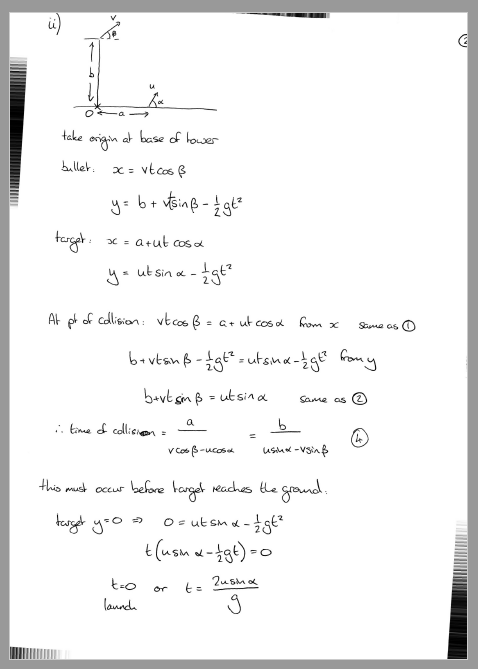 ii)
v
β
b
u
α
O
a
take origin at base of tower
bullet: x = vt cos β
y = b + vt sin β - 1/2 gt²
target: x = a + ut cos α
y = ut sin α - 1/2 gt²
At pt of collision: vt cos β = a + ut cos α from x same as ①
b + vt sin β - 1/2 gt² = ut sin α - 1/2 gt² from y
b + vt sin β = ut sin α same as ②
∴ time of collision = a / (v cos β - u cos α) = b / (u sin α - v sin β) ④
this must occur before target reaches the ground.
target y = 0 ⇒ 0 = ut sin α - 1/2 gt²
t(u sin α - 1/2 gt) = 0
t = 0 or t = 2u sin α / g
launch